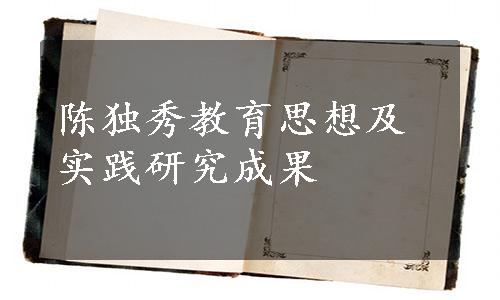 陈独秀教育思想及
实践研究成果